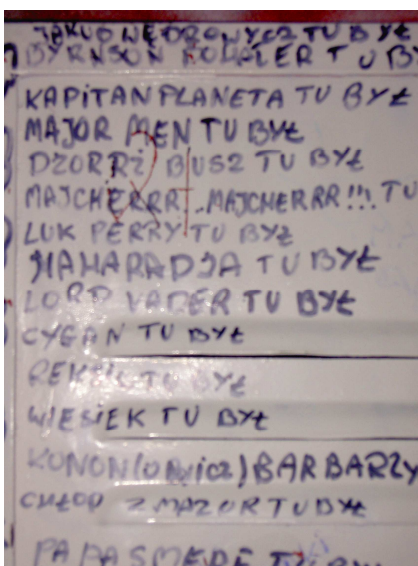 JAKUB WĘDROWYCZ TU BYŁ
BYRNSON KOWALER TU B
KAPITAN PLANETA TU BYŁ
MAJOR MEN TU BYŁ
DŻORRŻ BUSZ TU BYŁ
MAJCHERRR!..MAJCHERRR!!! TU
LUK PERRY TU BYŁ
MAHARADJA TU BYŁ
LORD VADER TU BYŁ
CYGAN TU BYŁ
REKSIO TU BYŁ
WIESIEK TU BYŁ
KONON(owicz) BARBARZY
CHŁOP Z MAZOR TU BYŁ
PAPA SMERF TU BY